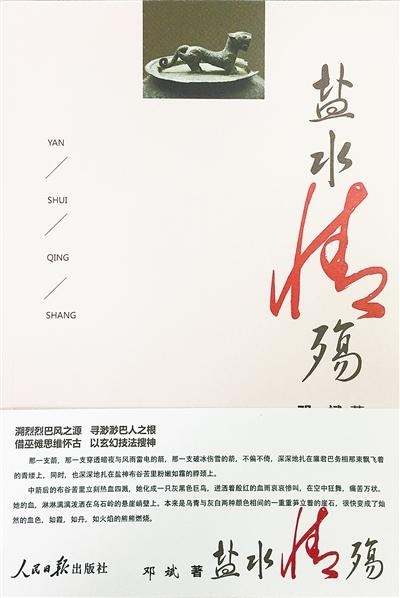 盐水情殇
YAN
SHUI
QING
SHANG
邓 斌 著
溯烈烈巴风之源 寻渺渺巴人之根
借巫傩思维怀古 以玄幻技法搜神
那一支箭,那一支穿透暗夜与风雨雷电的箭,那一支破冰伤雪的箭,不偏不倚,深深地扎在廪君巴务相那束飘飞着
的青缕上,同时,也深深地扎在盐神布谷苦里粉嫩如霜的脖颈上。
中箭后的布谷苦里立刻热血四溅,她化成一只灰黑色巨鸟,迸洒着殷红的血雨哀哀惨叫,在空中狂舞,痛苦万状。
她的血,淋淋漓漓泼洒在乌石岭的悬崖峭壁上,本来是乌青与灰白两种颜色相间的一重重笋立着的崖石,很快变成了灿
然的血色,如霞,如丹,如火焰的熊熊燃烧。
人民日报出版社 邓 斌 著 盐水情殇